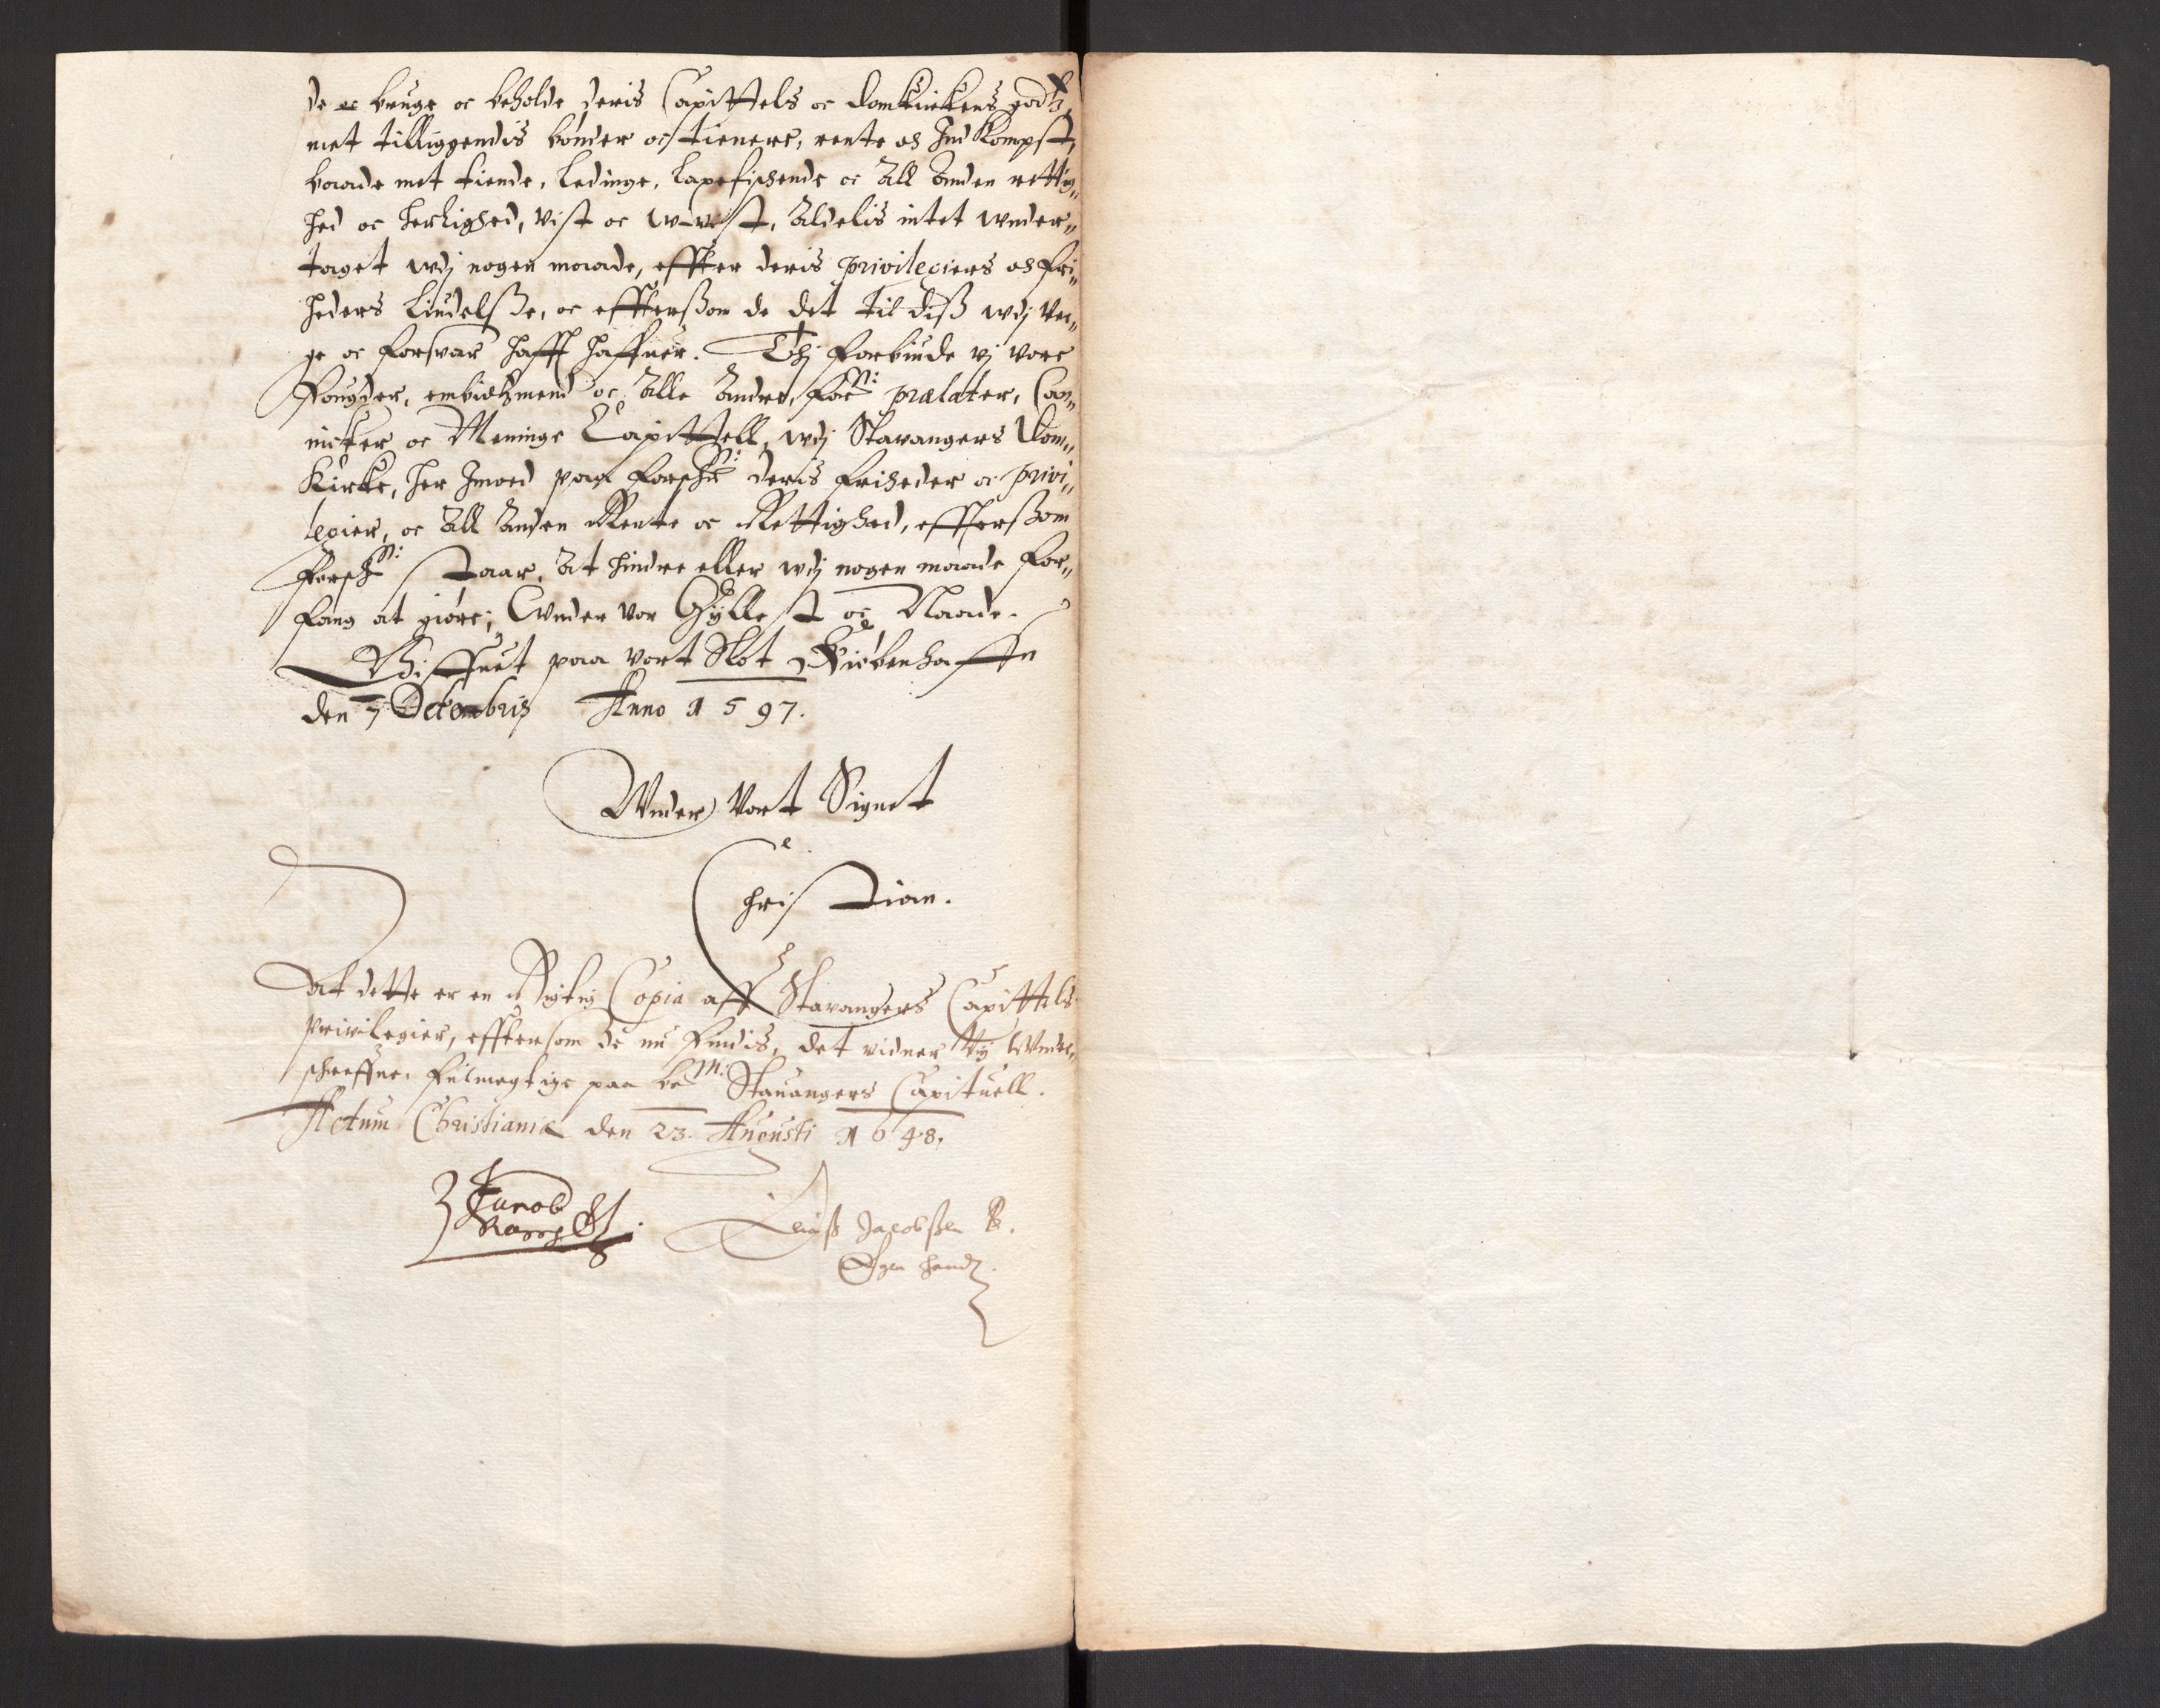 de oc bruge oc beholde deris Capittels oc Domkirckens godtz,
met tilliggendis bønder oc tienere, rente oc Indkompst,
baade met tiende, Ledinge, Laxefischende oc all anden rettig„
hed oc herlighed, vist oc wvist, aldelis intet wnder„
taget wdj nogen maade, effter deris privilegiers oc fri„
heders liudelsße, oc effterßom de det til diß wdj Ver„
ge oc forsvar hafft haffuer. Thj forbiude vj vore
Fougder, embidtzmend oc alle andre, forne: prælater, Can„
nicker oc Meninge Capittell, wdj Stavangers Dom„
Kircke, her Imod paa forschne: deris friheder oc privi„
legier, oc all anden Rente oc Rettighed, effterßom
forschne: staar, at hindre eller wdj nogen maade for„
fang at giøre; Wnder vor Hyllest oc Naade.
Giffuet paa vort Slot Kiøbenhaffn
den 7 Octobris Anno 1597.
Wnder Vort Signet
Christian.
At dette er en Rigtig Copia aff Stavangers Capittels
Privilegier, efftersom de nu findis, det vidner Vij Wnder„
schreffne, fulmegtige paa bem: Stauangers Capituell.
Actum Christianiæ den 23. Augusti 1648.
Jacob
Jacobßen
Egen hand